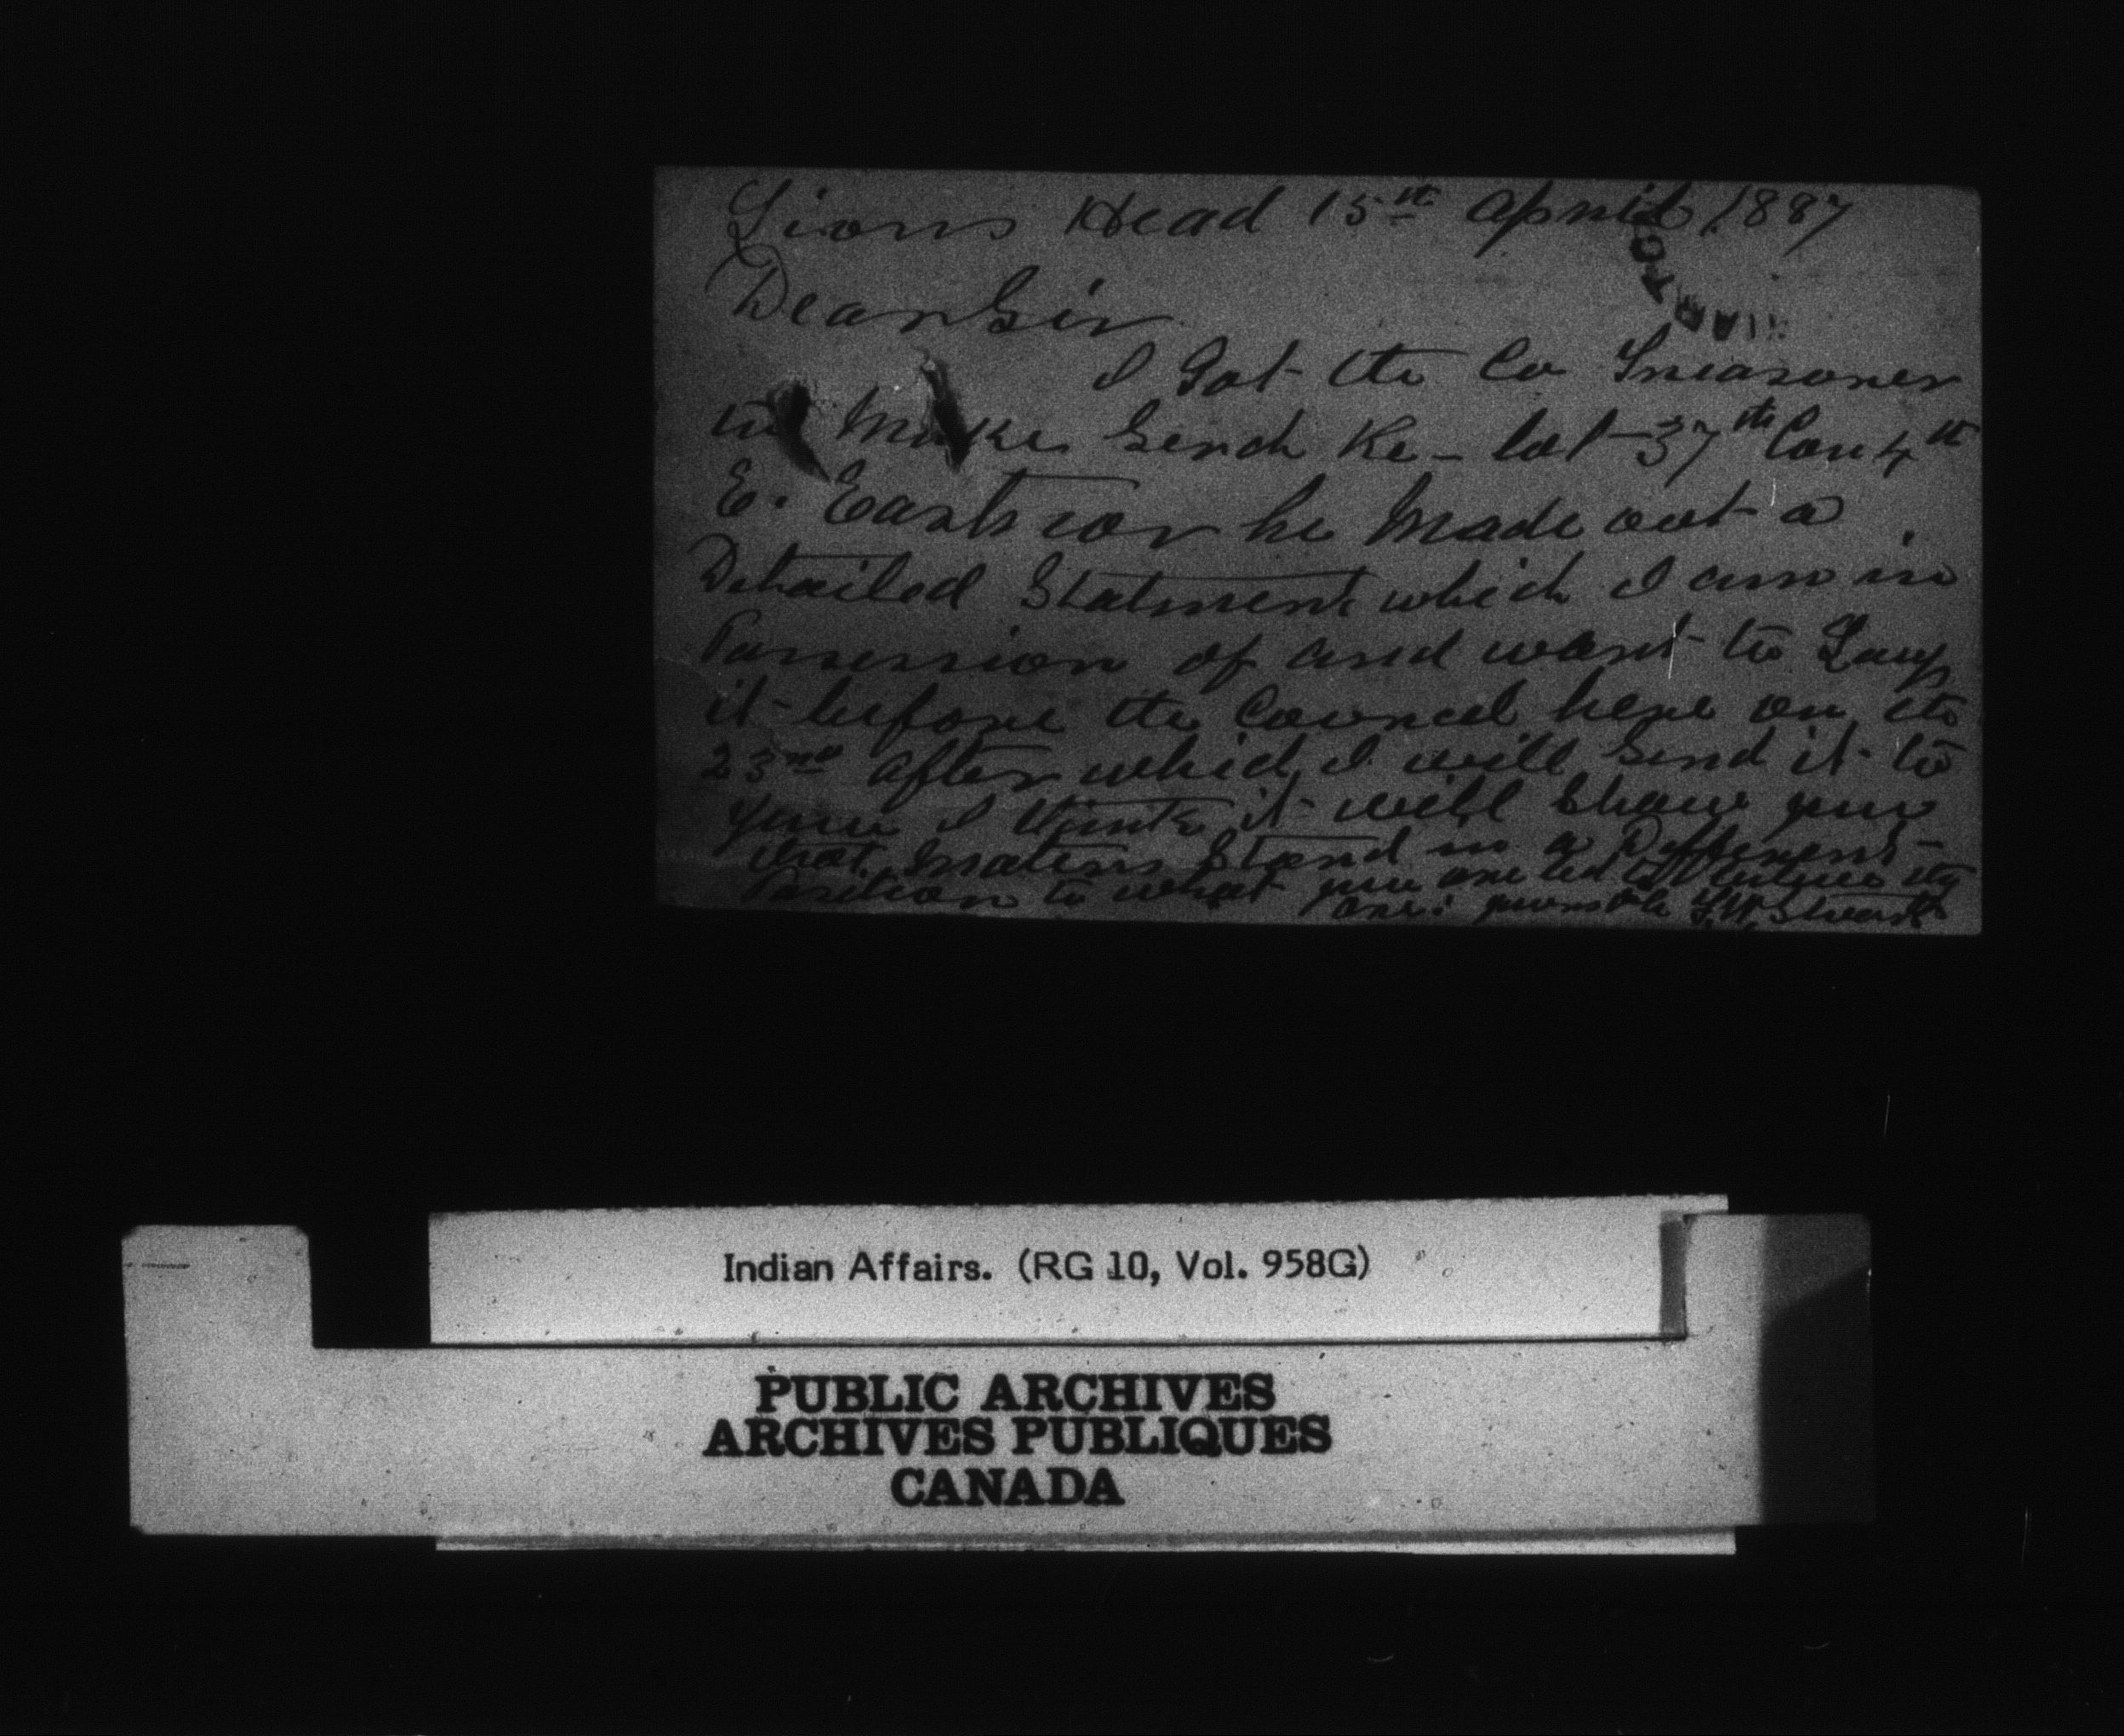 Lions Head 15th April 1887
Dear Sir
I Got the Co Treasorer
to Make Serch Re - lot 37th Con 4th
E. Eastnor he Made out a
Detailed Statment which I am in
Possession of and want to Lay
it before the Council here on the
23rd after which I will Send it to
you I think it will Show you
that Matters Stand in a Different
Position to what you are led to
one: yours
Indian Affairs. (RG 10, Vol. 958G)
PUBLIC ARCHIVES
ARCHIVES PUBLIQUES
CANADA